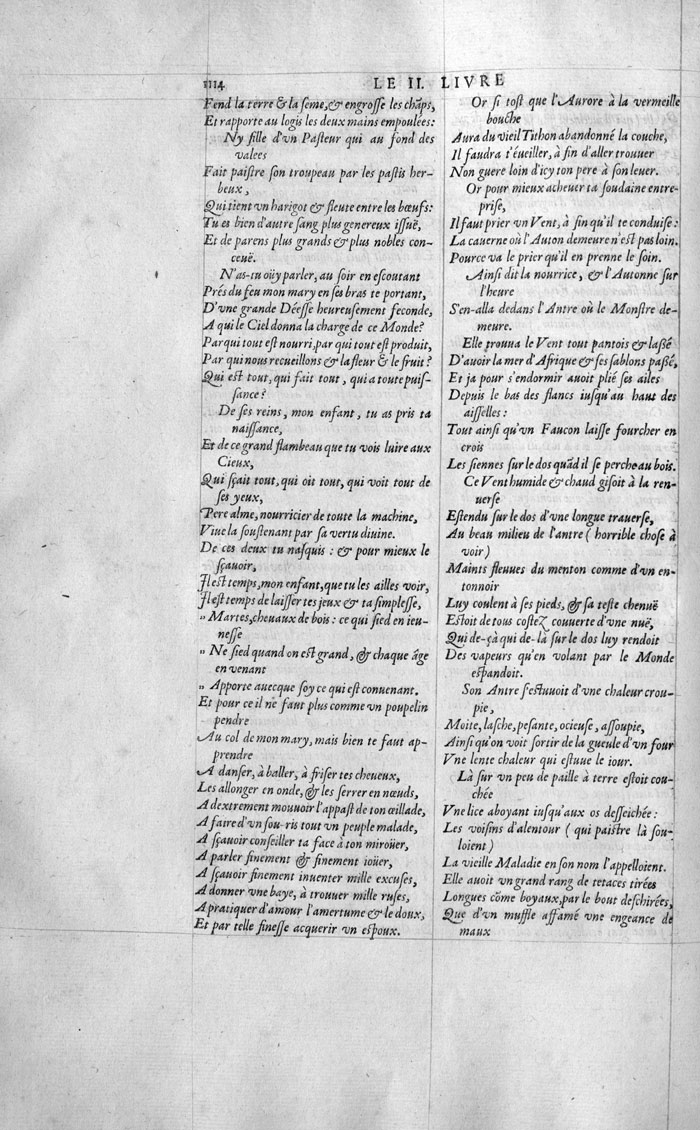 1114 LE II. LIVRE
Fend la terre & la seme, & engrosse les chãps,
Et rapporte au logis les deux mains empoulées:
Ny fille d'vn Pasteur qui au fond des
valees
Fait paistre son troupeau par les pastis her-
beux,
Qui tient vn harigot & fleute entre les bœufs:
Tu es bien d'autre sang plus genereux issuë,
Et de parens plus grands & plus nobles con-
ceuë.
N'as-tu oüy parler, au soir en escoutant
Prés du feu mon mary en ses bras te portant,
D'vne grande Déesse heureusement feconde,
A qui le Ciel donna la charge de ce Monde?
Par qui tout est nourri, par qui tout est produit,
Par qui nous recueillons & la fleur & le fruit?
Qui est tout, qui fait tout, qui a toute puis-
sance?
De ses reins, mon enfant, tu as pris ta
naissance,
Et de ce grand flambeau que tu vois luire aux
Cieux,
Qui sçait tout, qui oit tout, qui voit tout de
ses yeux,
Pere alme, nourricier de toute la machine,
Viue la soustenant par sa vertu diuine.
De ces deux tu nasquis : & pour mieux le
sçauoir,
Il est temps, mon enfant, que tu les ailles voir,
Il est temps de laisser tes jeux & ta simplesse,
„ Martes, cheuaux de bois : ce qui sied en ieu-
nesse
„ Ne sied quand on est grand, & chaque âge
en venant
„ Apporte auecque soy ce qui est conuenant.
Et pour ce il ne faut plus comme vn poupelin
pendre
Au col de mon mary, mais bien te faut ap-
prendre
A danser, à baller, à friser tes cheueux,
Les allonger en onde, & les serrer en nœuds,
A dextrement mouuoir l'appast de ton œillade,
A faire d'vn sou-ris tout vn peuple malade,
A sçauoir conseiller ta face à ton miroüer,
A parler finement & finement ioüer,
A sçauoir finement inuenter mille excuses,
A donner vne baye, à trouuer mille ruses,
A pratiquer d'amour l'amertume & le doux,
Et par telle finesse acquerir vn espoux.
Or si tost que l'Aurore à la vermeille
bouche
Aura du vieil Tithon abandonné la couche,
Il faudra t'éueiller, à fin d'aller trouuer
Non guere loin d'icy ton pere à son leuer.
Or pour mieux acheuer ta soudaine entre-
prise,
Il faut prier vn Vent, à fin qu'il te conduise :
La cauerne où l'Auton demeure n'est pas loin.
Pource va le prier qu'il en prenne le soin.
Ainsi dit la nourrice, & l'Autonne sur
l'heure
S'en-alla dedans l'Antre où le Monstre de-
meure.
Elle trouua le Vent tout pantois & lassé
D'auoir la mer d'Afrique & ses sablons passé,
Et ja pour s'endormir auoit plié ses ailes
Depuis le bas des flancs iusqu'au haut des
aisselles :
Tout ainsi qu'vn Faucon laisse fourcher en
crois
Les siennes sur le dos quãd il se perche au bois.
Ce Vent humide & chaud gisoit à la ren-
uerse
Estendu sur le dos d'vne longue trauerse,
Au beau milieu de l'antre ( horrible chose à
voir )
Maints fleuues du menton comme d'vn en-
tonnoir
Luy coulent à ses pieds, & sa teste chenuë
Estoit de tous costez couuerte d'vne nuë,
Qui de-çà qui de-là sur le dos luy rendoit
Des vapeurs qu'en volant par le Monde
espandoit.
Son Antre s'estuuoit d'vne chaleur crou-
pie,
Moite, lasche, pesante, ocieuse, assoupie,
Ainsi qu'on voit sortir de la gueule d'vn four
Vne lente chaleur qui estuue le iour.
Là sur vn peu de paille à terre estoit cou-
chée
Vne lice aboyant iusqu'aux os desseichée :
Les voisins d'alentour ( qui paistre là sou-
loient )
La vieille Maladie en son nom l'appelloient.
Elle auoit vn grand rang de tetaces tirées
Longues cõme boyaux, par le bout deschirées,
Que d'vn muffle affamé vne engeance de
maux